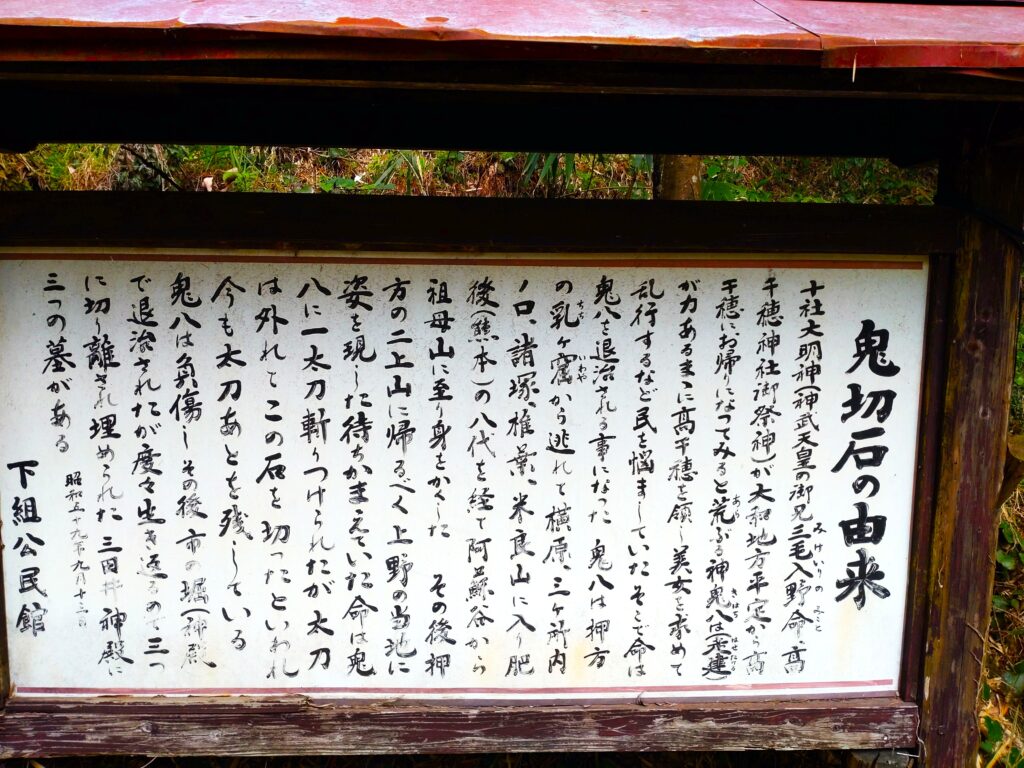 鬼切石の由来
十社大明神(神武天皇の御兄三毛入野命高
千穂神社御祭神)が大和地方平定から高
千穂にお帰りになってみると荒ぶる神鬼八は(走建)
が力あるまゝに高千穂を領し美女を求めて
乱行するなど民を悩ましていたそこで命は
鬼八を退治される事になった 鬼八は押方
の乳ヶ窟から逃れて横原、三ヶ所内
ノ口、諸塚、椎葉、米良山に入り肥
後(熊本)の八代を経て阿蘇谷から
祖母山に至り身をかくした その後押
方の二上山に帰るべく上野の当地に
姿を現した待ちかまえていた命は鬼
八に一太刀斬りつけられたが太刀
は外れてこの石を切ったといわれ
今も太刀あとを残している
鬼八は負傷しその後市の堀(神殿
で退治されたが度々生き返るので三つ
に切り離され埋められた 三田井神殿に
三つの墓がある
昭和五十九年九月十三日
下組公民館